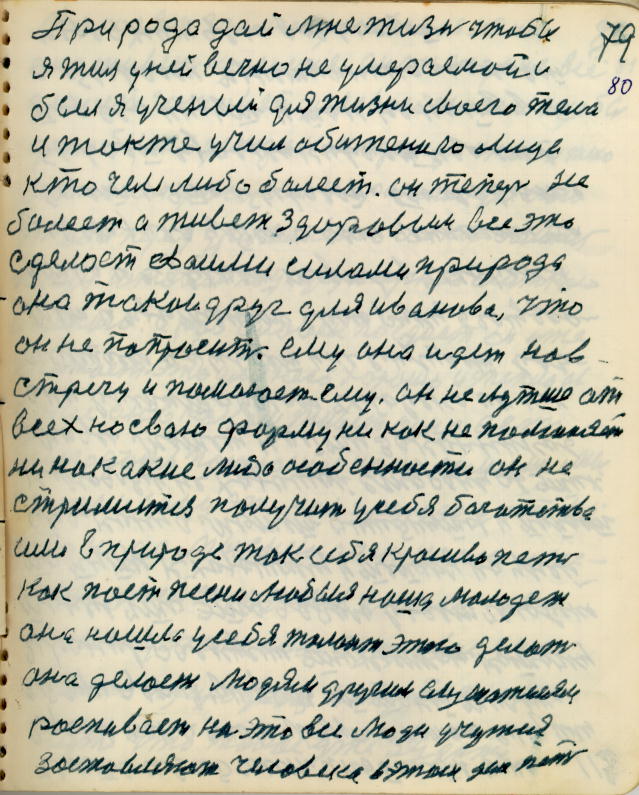 Природа дай мне жизнь чтобы 79
я жил у ней вечно не умераемой и 80
был я ученый для жизни своего тела
и также учил обиженого люде
кто чем либо болеет. он тепер не
болеет а живет здоровым все это
сделает своими силами природа
она таков друг для иванова, что
он не попросит. ему она идет нав
стречу и помогает ему. он не лутше от
всех на сваю форму ни как не
ни на какие либо особенности он не
стримится получит у себя богатства
или в природе так себя красиво пет
как поет песни любыя наша молодеж
она нашла у себя талант этого делат
она делает людям другим слушателям
роспивает на это все люди
заставляют человека в этом деле пет